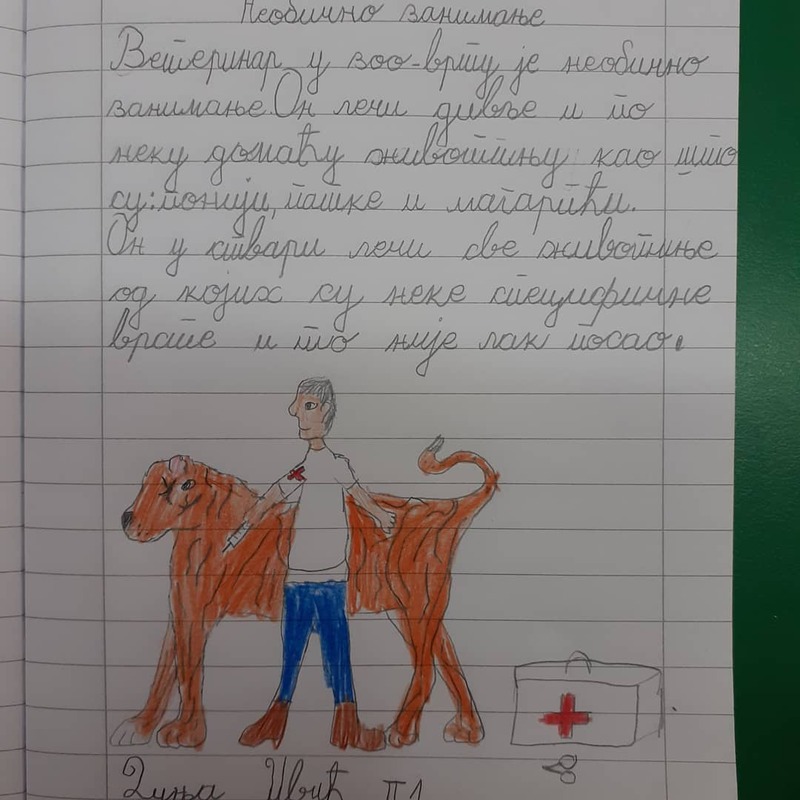 Необично занимање
Ветеринар у зоо-врту је необично
занимање. Он лечи дивље и по
неку домаћу животињу као што
су: понији, патке и магарићи.
Он у ствари лечи све животиње
од којих су неке специфичне
врсте и то није лак посао.
Дуња Ивић II1